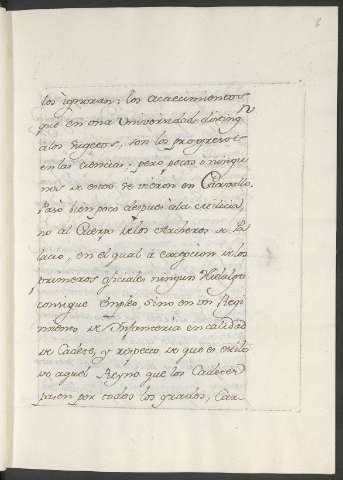 6
los ignoran; los acaecimientos
que en una Universidad disting
alos sugetos, son los progresos
en las ciencias; pero pocos ò ningu
nos de estos se vieron en Carvallo.
Pasò bien poco despues ala milicia,
no al Cuerpo de los Archeros de Pa
lacio, en el qual á excepcion de los
primeros oficiales ningun Hidalgo
consigue empleo, sino en un Regi
miento de Infanteria en calidad
de Cadete, y respecto de que es estilo
de aquel Reyno que los Cadetes
pasen por todos los grados, Car-